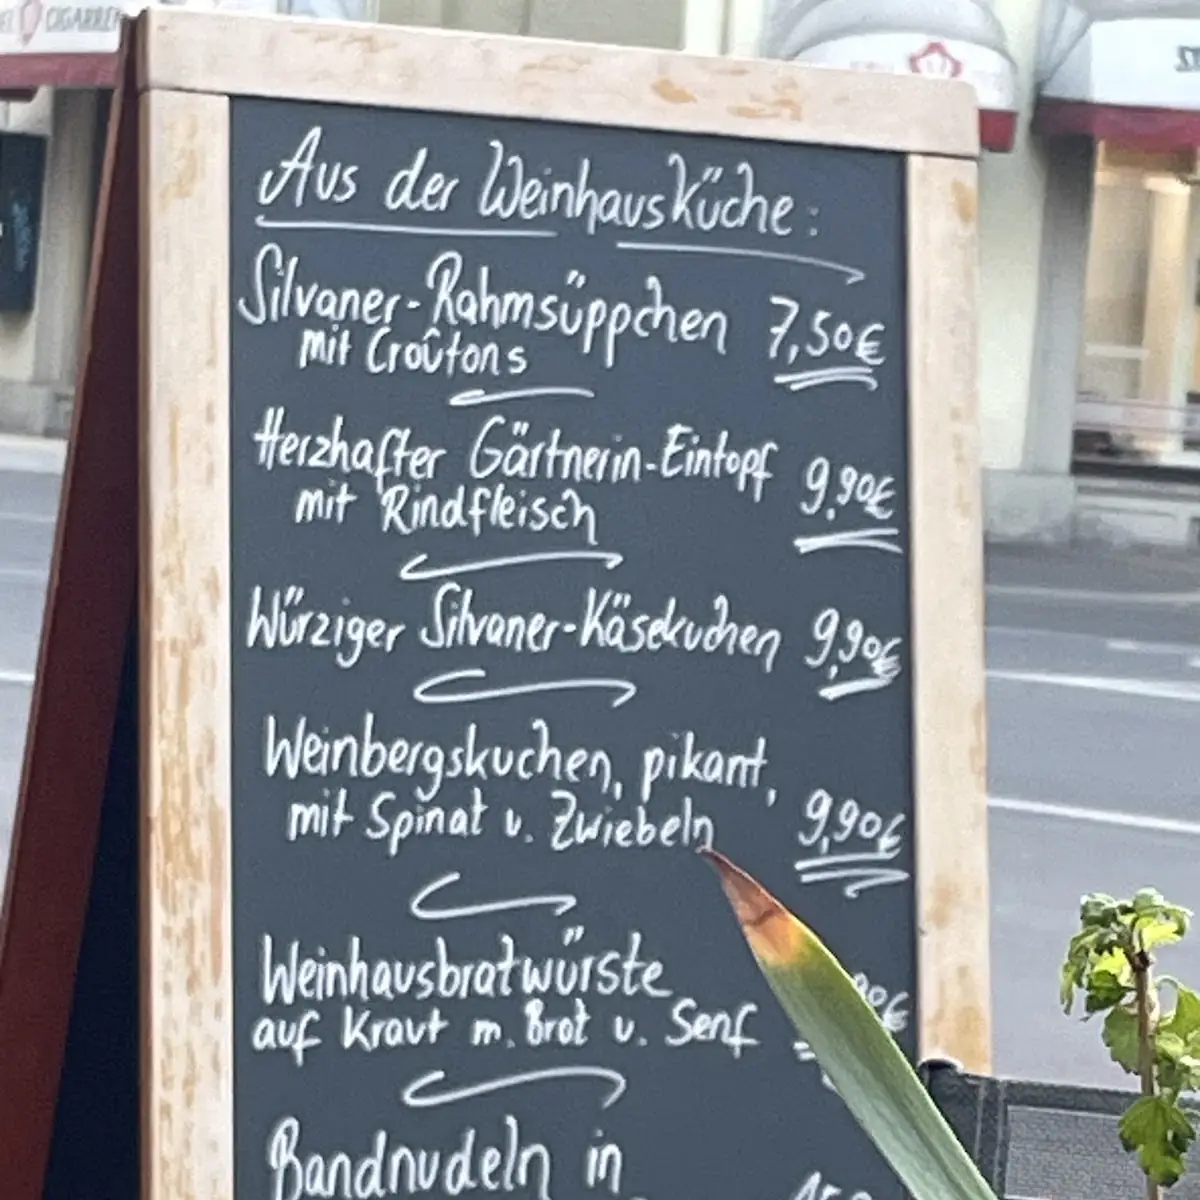 CIGARREN
Aus der Weinhausküche:
Silvaner-Rahmsüppchen 7,50€
mit Croûtons
Herzhafter Gärtnerin-Eintopf 9,90€
mit Rindfleisch
Würziger Silvaner-Käsekuchen 9,90€
Weinbergskuchen, pikant,
mit Spinat u. Zwiebeln 9,90€
Weinhausbratwürste
auf Kraut m. Brot u. Senf
Bandnudeln in